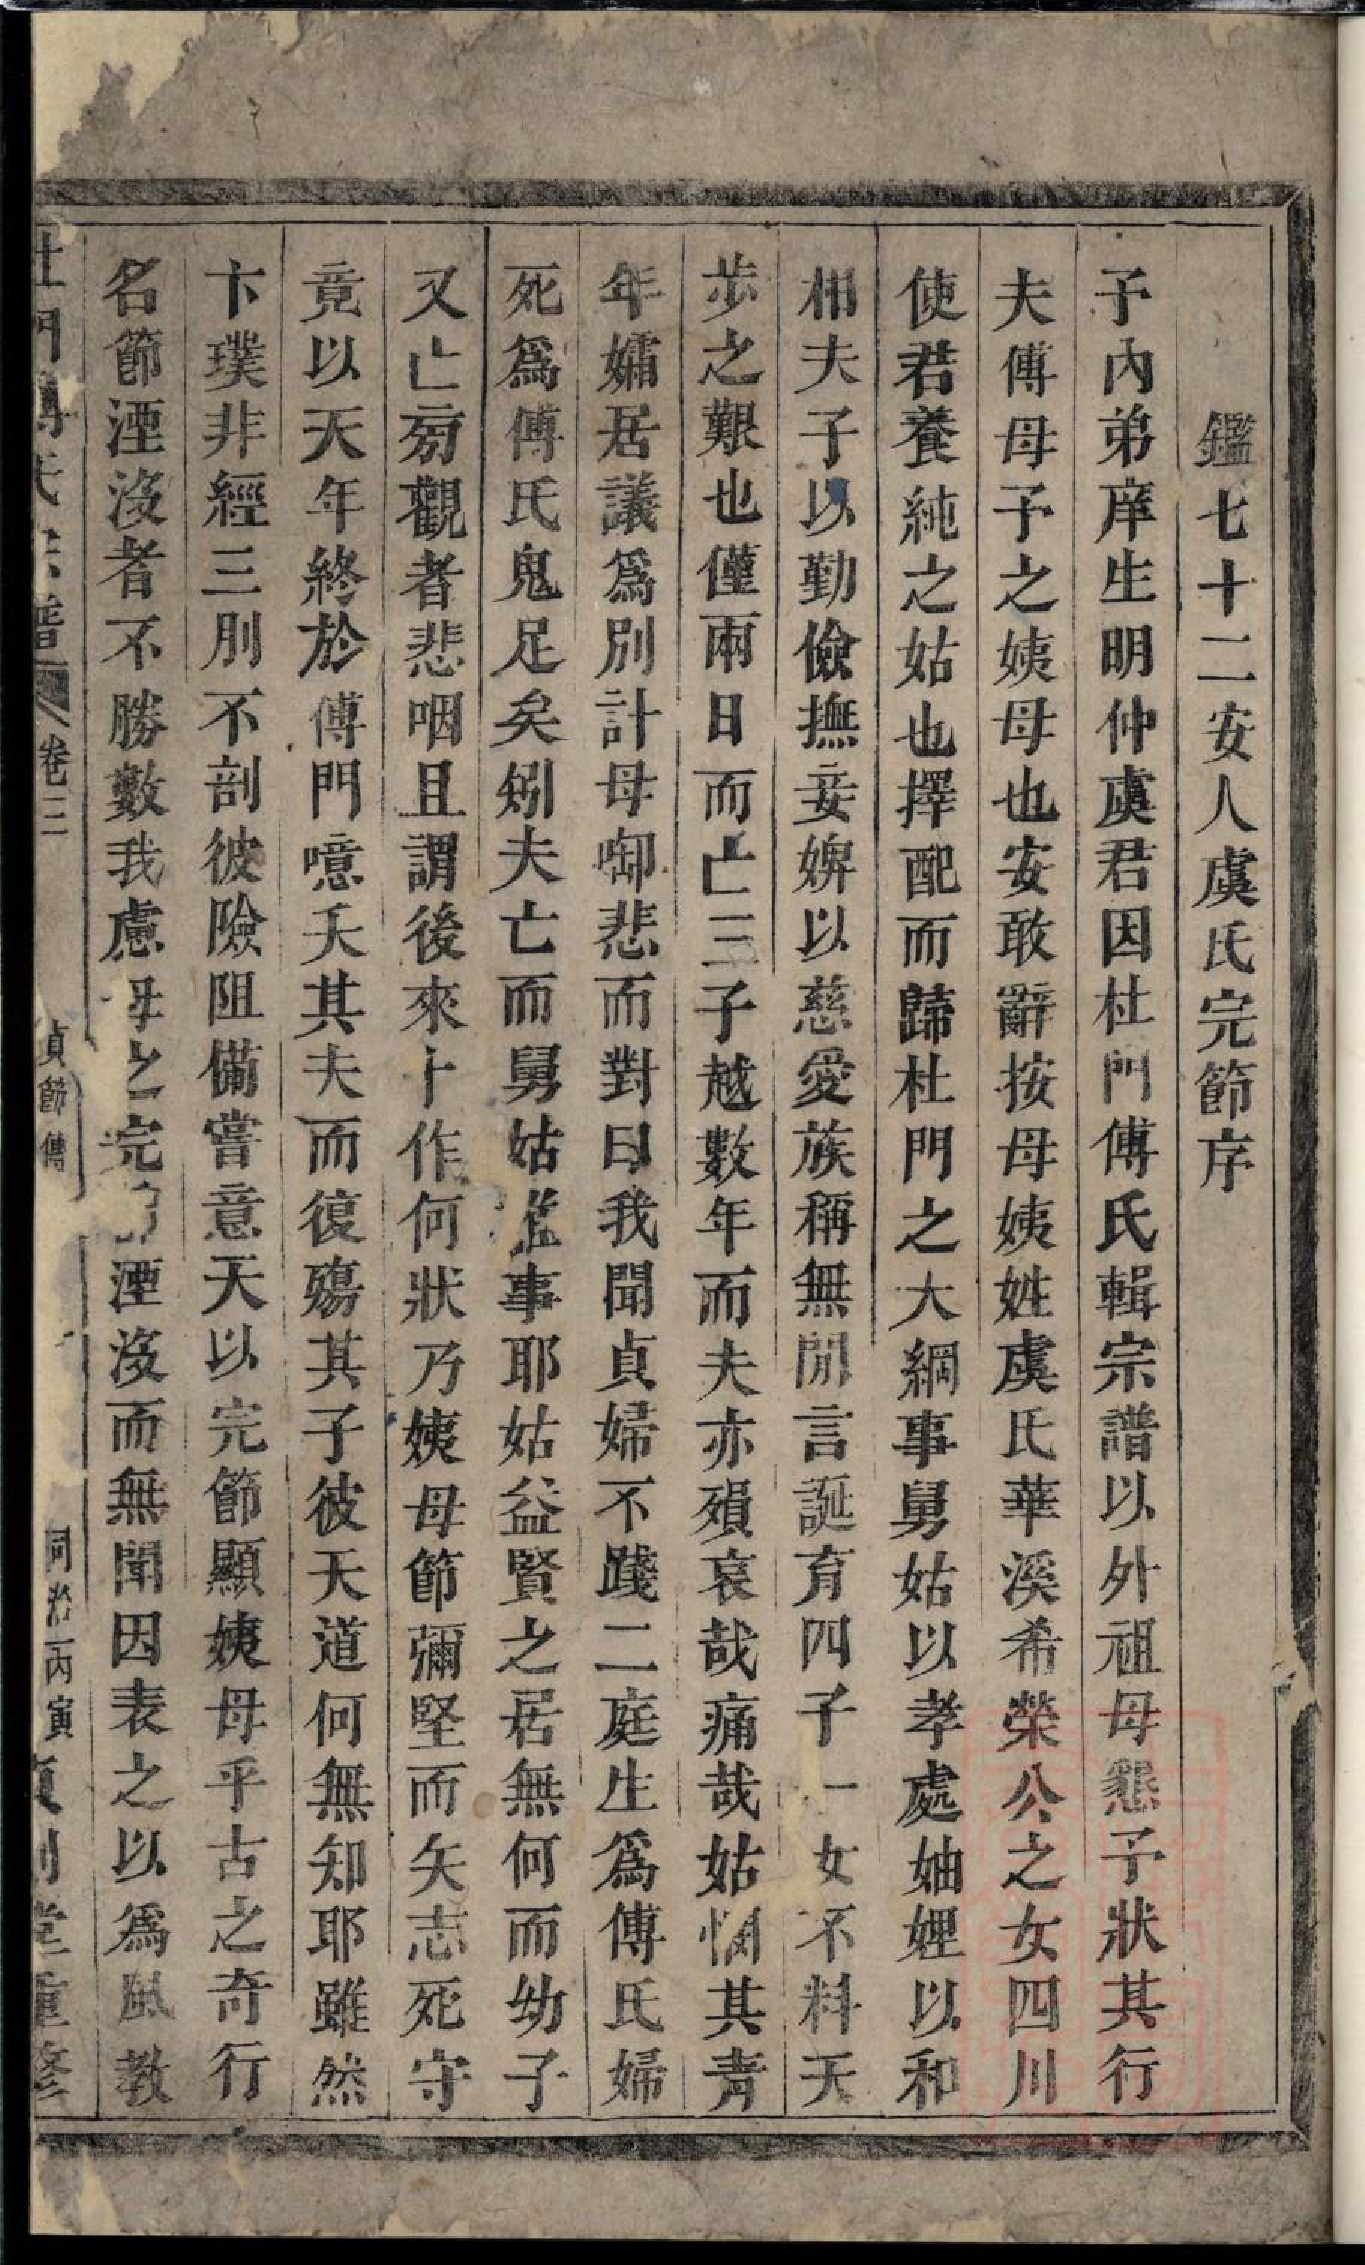 鑑七十二安人虞氏完節序
予內弟庠生明仲虞君因杜門傅氏輯宗譜以外祖母懇予狀其行
夫傅母予之姨母也安敢辭按母姨姓虞氏華溪希榮公之女四川
使君養純之姑也擇配而歸杜門之大綱事舅姑以孝處妯娌以和
相夫子以勤儉撫妾婢以慈愛族稱無閒言誕育四子一女不料天
步之艱也僅兩日而亡三子越數年而夫亦殞哀哉痛哉姑憫其青
年孀居議爲別計母啣悲而對曰我聞貞婦不踐二庭生爲傅氏婦
死爲傅氏鬼足矣矧夫亡而舅姑事耶姑益賢之居無何而幼子
又亡旁觀者悲咽且謂後來十作何狀乃姨母節彌堅而矢志死守
竟以天年終於傅門噫夭其夫而復殤其子彼天道何無知耶雖然
卞璞非經三刖不剖彼險阻備嘗意天以完節顯姨母乎古之奇行
名節湮沒者不勝數我慮母之完湮沒而無聞因表之以爲風教
杜門傅氏宗譜 卷三 貞節傳 同治丙寅 堂重修